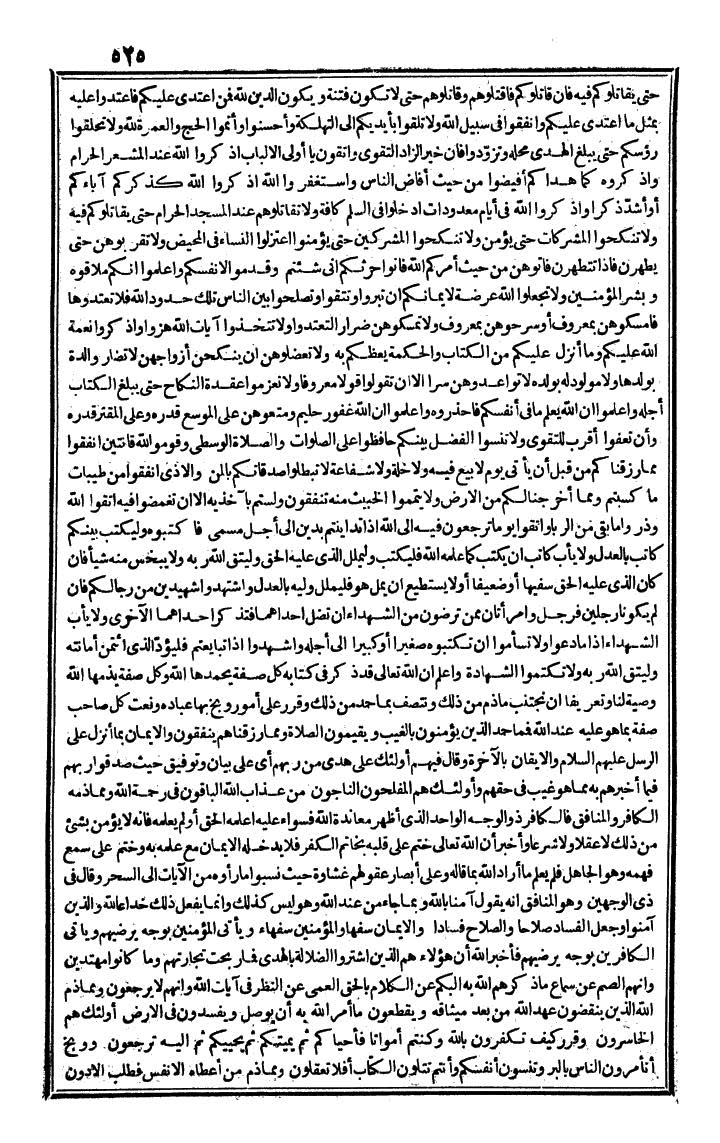 ٥٢٥
حتى يقاتلوكم فيه فان قاتلوكم فاقتلوهم وقاتلوهم حتى لا تكون فتنة ويكون الدين لله فمن اعتدى عليكم فاعتدوا عليه
بمثل ما اعتدى عليكم وانفقوا فى سبيل الله ولا تلقوا بأيديكم الى التهلكة وأحسنوا وأتموا الحج والعمرة لله ولا تحلقوا
رؤسكم حتى يبلغ الهدى محله وتزودوا فان خير الزاد التقوى واتقون يا أولى الالباب اذكروا الله عند المشعر الحرام
واذكروه كما هداكم أفيضوا من حيث أفاض الناس واستغفروا الله اذكروا الله كذكركم آباءكم
أو أشد ذكرا واذكروا الله فى أيام معدودات ادخلوا فى السلم كافة ولا تقاتلوهم عند المسجد الحرام حتى يقاتلوكم فيه
ولا تنكحوا المشركات حتى يؤمن ولا تنكحوا المشركين حتى يؤمنوا اعتزلوا النساء فى المحيض ولا تقربوهن حتى
يطهرن فاذا تطهرن فأتوهن من حيث أمركم الله فأتوا حرثكم انى شئتم وقدموا لانفسكم واعلموا انكم ملاقوه
وبشر المؤمنين ولا تجعلوا الله عرضة لايمانكم ان تبروا وتتقوا وتصلحوا بين الناس تلك حدود الله فلا تعتدوها
فامسكوهن بمعروف أو سرحوهن بمعروف ولا تمسكوهن ضرارا لتعتدوا ولا تتخذوا آيات الله هزوا واذكروا نعمة
الله عليكم وما أنزل عليكم من الكتاب والحكمة يعظكم به ولا تعضلوهن ان ينكحن أزواجهن لا تضار والدة
بولدها ولا مولود له بولده لا تواعدوهن سرا الا ان تقولوا قولا معروفا ولا تعزموا عقدة النكاح حتى يبلغ الكتاب
أجله واعلموا ان الله يعلم ما فى أنفسكم فاحذروه واعلموا ان الله غفور حليم ومتعوهن على الموسع قدره وعلى المقتر قدره
وأن تعفوا أقرب للتقوى ولا تنسوا الفضل بينكم حافظوا على الصلوات والصلاة الوسطى وقوموا لله قانتين انفقوا
مما رزقناكم من قبل أن يأتى يوم لا بيع فيه ولا خلة ولا شفاعة لا تبطلوا صدقاتكم بالمن والاذى انفقوا من طيبات
ما كسبتم ومما أخرجنا لكم من الارض ولا يتمموا الخبيث منه تنفقون ولستم بآخذيه الا ان تغمضوا فيه اتقوا الله
وذروا ما بقى من الربا واتقوا يوما ترجعون فيه الى الله اذا تداينتم بدين الى أجل مسمى فاكتبوه وليكتب بينكم
كاتب بالعدل ولا يأب كاتب ان يكتب كما علمه الله فليكتب وليملل الذى عليه الحق وليتق الله ربه ولا يبخس منه شيأ فان
كان الذى عليه الحق سفيها أو ضعيفا أو لا يستطيع ان يمل هو فليملل وليه بالعدل واشتهدوا شهيدين من رجالكم فان
لم يكونا رجلين فرجل وامرأتان ممن ترضون من الشهداء ان تضل احداهما فتذكر احداهما الاخرى ولا يأب
الشهداء اذا ما دعوا ولا تسأموا ان تكتبوه صغيرا أو كبيرا الى أجله واشهدوا اذا تبايعتم فليؤد الذى ائتمن أمانته
وليتق الله ربه ولا تكتموا الشهادة واعلم ان الله تعالى قد ذكر فى كتابه كل صفة يحمدها الله وكل صفة يذمها الله
وصية لنا وتعريفا ان نجتنب ما ذم من ذلك ونتصف بما حمد من ذلك وقرر على أمور وبخ بها عباده ونعت كل صاحب
صفة بما هو عليه عند الله فما حمد الذين يؤمنون بالغيب ويقيمون الصلاة ومما رزقناهم ينفقون والايمان بما أنزل على
الرسل عليهم السلام والايقان بالآخرة وقال فيهم أولئك على هدى من ربهم أى على بيان وتوفيق حيث صدقوا ربهم
فيما أخبرهم به مما هو غيب فى حقهم وأولئك هم المفلحون الناجون من عذاب الله الباقون فى رحمة الله ومما ذمه
الكافر والمنافق فالكافر ذو الوجه الواحد الذى أظهر معاندة الله فسواء عليه اعلمه الحق أو لم يعلمه فانه لا يؤمن بشئ
من ذلك لا عقلا ولا شرعا وأخبر أن الله تعالى ختم على قلبه بخاتم الكفر فلا يدخله الايمان مع علمه به وختم على سمع
فهمه وهو الجاهل فلم يعلم ما أراد الله بما قاله وعلى أبصار عقولهم غشاوة حيث نسبوا ما رأوه من الآيات الى السحر وقال فى
ذى الوجهين وهو المنافق انه يقول آمنا بالله وبما جاء من عند الله وهو ليس كذلك وانما يفعل ذلك خداعا لله والذين
آمنوا وجعل الفساد صلاحا والصلاح فسادا والايمان سفها والمؤمنين سفهاء ويأتى المؤمنين بوجه يرضيهم ويأتى
الكافرين بوجه يرضيهم فأخبر الله أن هؤلاء هم الذين اشتروا الضلالة بالهدى فما ربحت تجارتهم وما كانوا مهتدين
وانهم الصم عن سماع ما ذكرهم الله به البكم عن الكلام بالحق العمى عن النظر فى آيات الله وانهم لا يرجعون ومما ذم
الله الذين ينقضون عهد الله من بعد ميثاقه ويقطعون ما أمر الله به أن يوصل ويفسدون فى الارض أولئك هم
الخاسرون وقرر كيف تكفرون بالله وكنتم أمواتا فأحياكم ثم يميتكم ثم يحييكم ثم اليه ترجعون ووبخ
أتأمرون الناس بالبر وتنسون أنفسكم وأنتم تتلون الكتاب أفلا تعقلون ومما ذم من أعطاه الانفس فطلب الادون